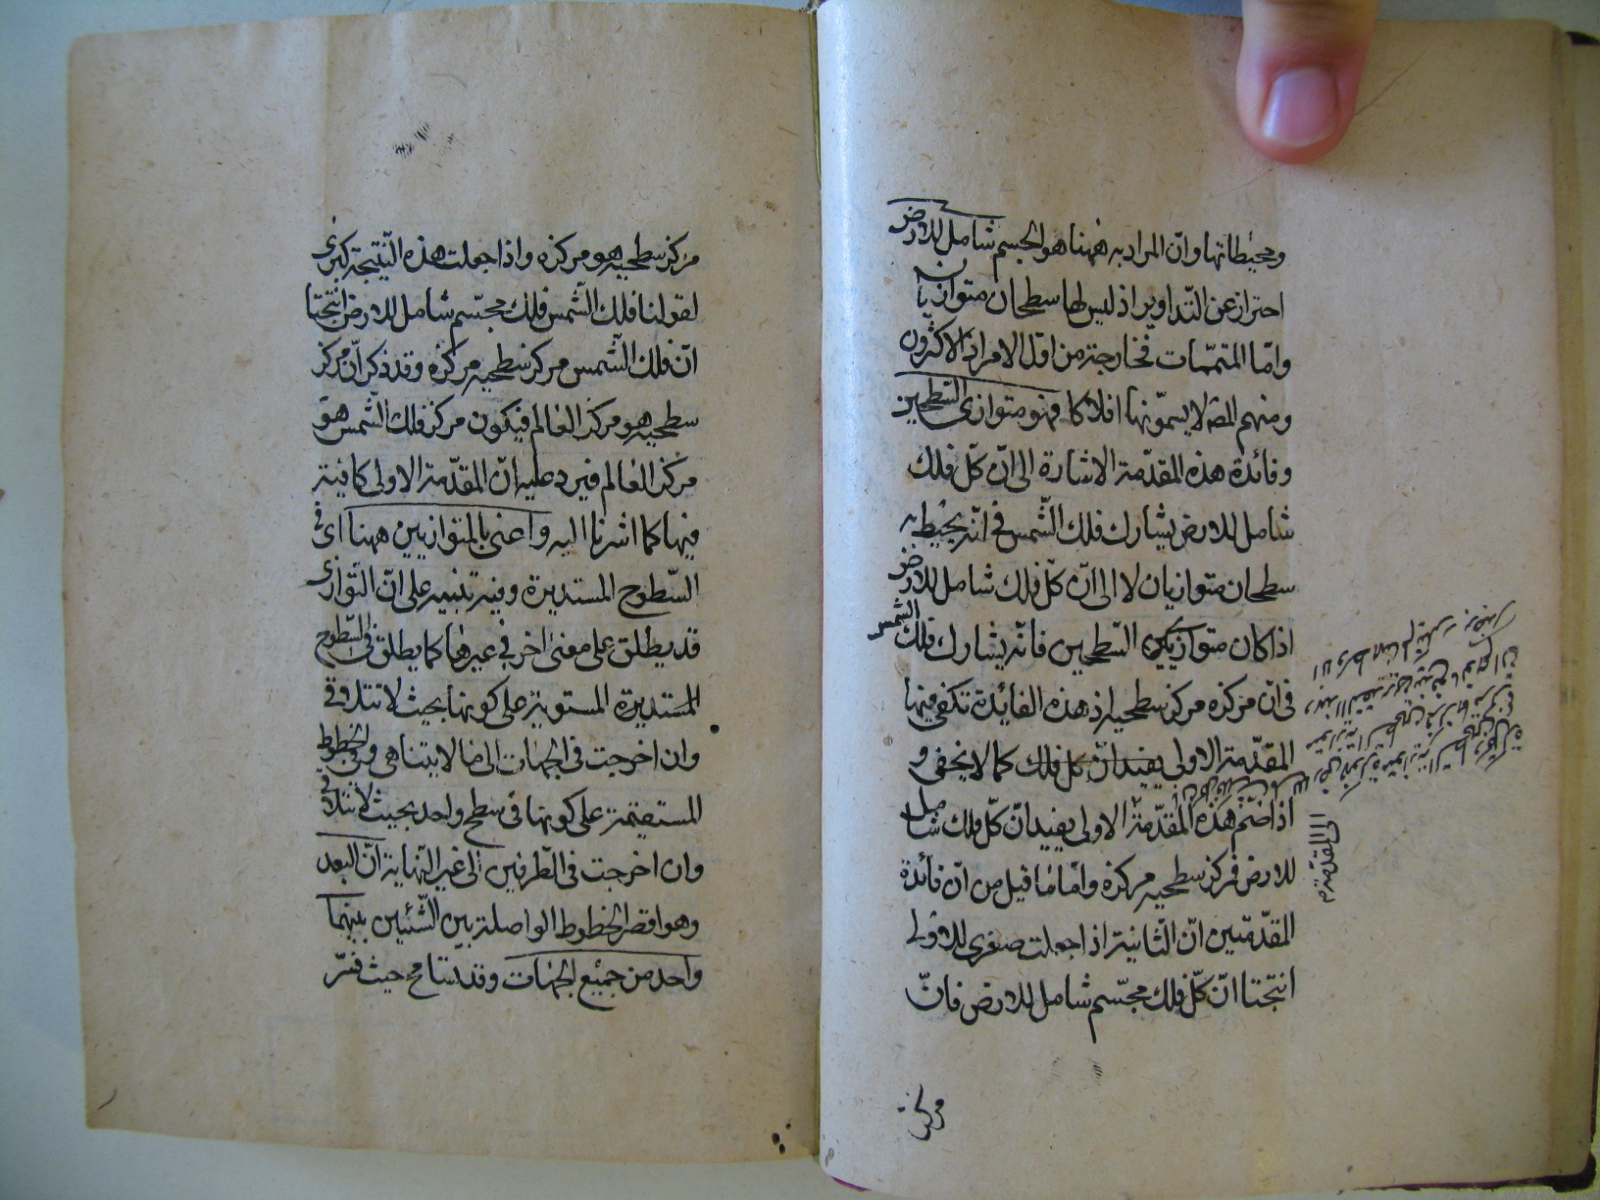 ومحيطاتها وانّ المراد به ههنا هو الجسم شامل للارض
احتراز عن التّداوير اذ ليس لها سطحان متوازيان
وامّا المتمّمات فخارجة من اوّل الامر اذ الاكثرون
ومنهم المصۀ لا يسمّونها افلاكا فهو متوازى السّطحين
وفائدة هذه المقدّمة الاشارة الى انّ كلّ فلك
شامل للارض يشارك فلك الشّمس فى انّه يحيط به
سطحان متوازيان لا الى انّ كلّ فلك شامل للارض
اذا كان متوازيين السّطحين فانّه يشارك فلك الشمس
فى انّ مركزه مركز سطحيه اذ هذه الفائدة تكفى فيها
المقدّمة الاولى يفيد انّ كل فلك كما لا يخفى و
اذا ضمّ هذه المقدّمة الاولى يفيد انّ كلّ فلك شامل
للارض فمركز سطحيه مركزه وامّا ما قيل من انّ فائدة
المقدّمتين انّ الثانية اذا جعلت صغرى للاولى
انتجتا انّ كلّ فلك مجسّم شامل للارض فانّ
مركز
الى المقدّمة
مركز سطحيه هو مركزه واذا جعلت هذه النّتيجة كبرى
لقولنا فلك الشّمس فلك مجسّم شامل للارض انتجتا
انّ فلك الشّمس مركز سطحيه مركزه وقد ذكر انّ مركز
سطحيه هو مركز العالم فيكون مركز فلك الشّمس هو
مركز العالم فيرد عليه انّ المقدّمة الاولى كافية
فيها كما اشرنا اليه واعنى بالمتوازيين ههنا اى فى
السّطوح المستديرة وفيه تنبيه على انّ التّوازى
قد يطلق على معنى اخر فى غيرها كما يطلق فى السّطوح
المستديرة المستوية على كونها بحيث لا تتلاقى
وان اخرجت فى الجهات الى ما لا يتناهى وفى الخطوط
المستقيمة على كونها فى سطح واحد بحيث لا تتلاقى
وان اخرجت فى الطّرفين الى غير النّهاية انّ البعد
وهو اقصر الخطوط الواصلة بين الشّيئين بينهما
واحد من جميع الجهات وقد تسامح حيث فسّر